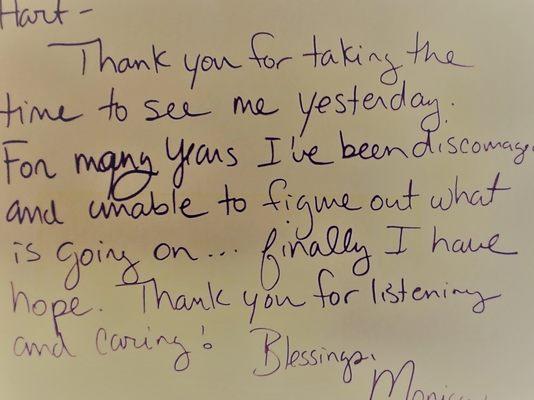 Hart -
Thank you for taking the
time to see me yesterday.
For many years I've been discourage
and unable to figure out what
is going on... finally I have
hope. Thank you for listening
and caring! Blessings,
Monica